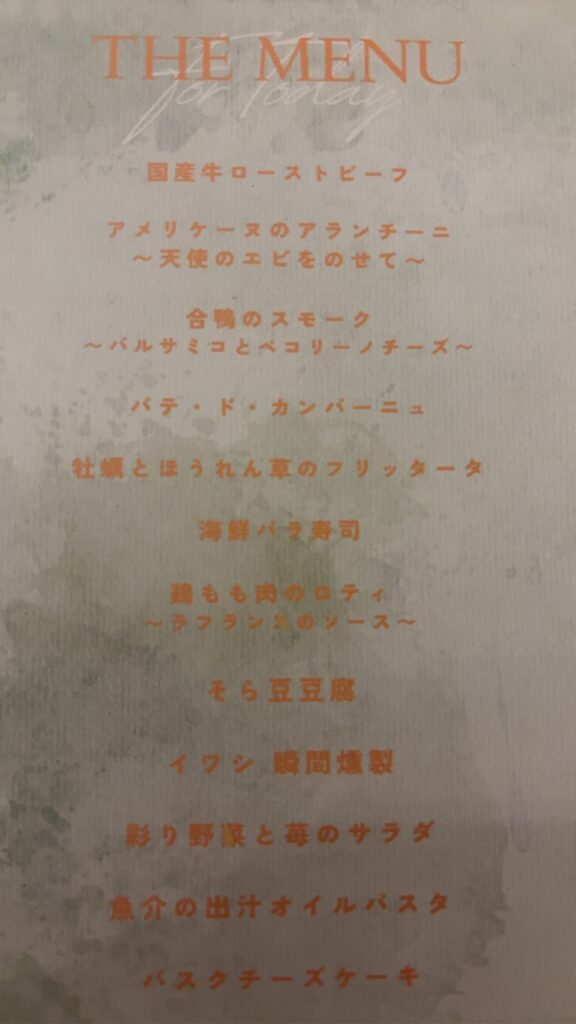 THE MENU
for Today
国産牛ローストビーフ
アメリケーヌのアランチーニ
～天使のエビをのせて～
合鴨のスモーク
～バルサミコとペコリーノチーズ～
パテ・ド・カンパーニュ
牡蠣とほうれん草のフリッタータ
海鮮バラ寿司
鶏もも肉のロティ
～ラフランスのソース～
そら豆豆腐
イワシ 瞬間燻製
彩り野菜と苺のサラダ
魚介の出汁オイルパスタ
バスクチーズケーキ